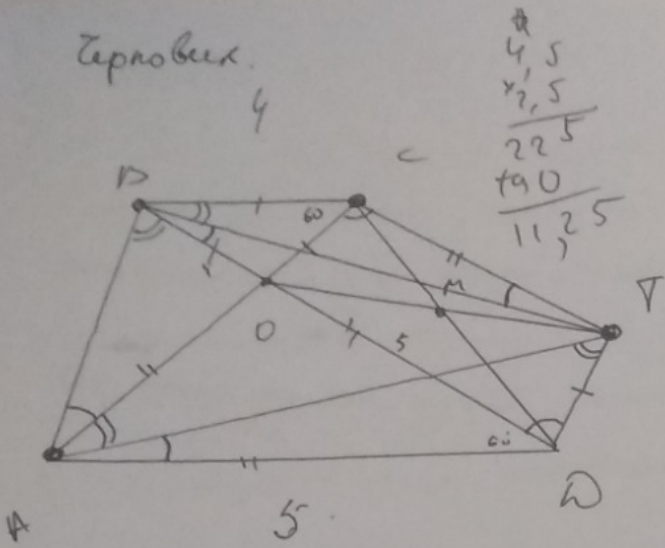 Черновик.
4
4,5
×2,5
225
+90
11,25
B
C
60
M
T
O
5
60
A
D
5